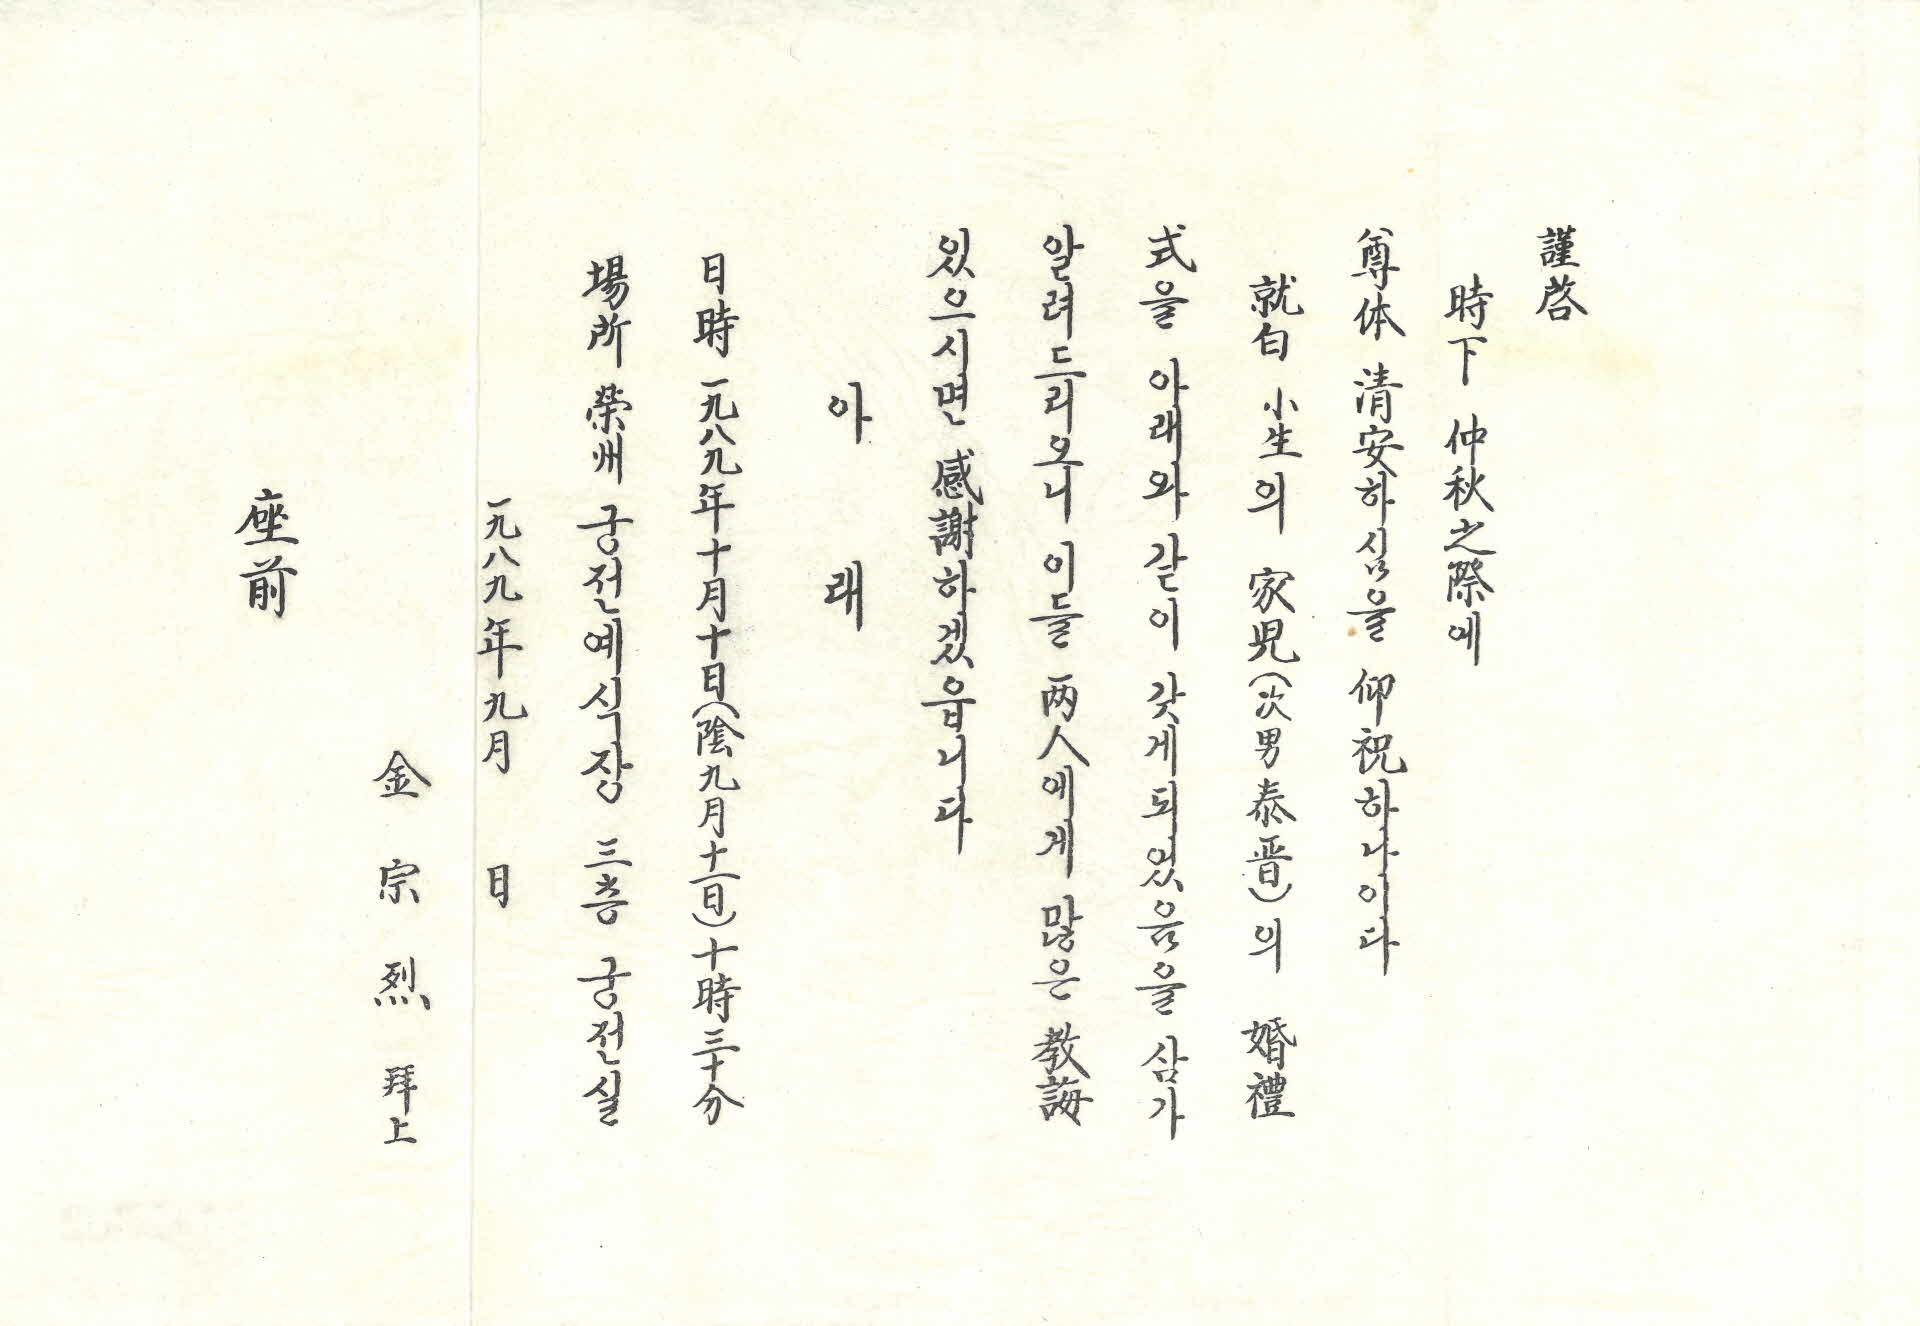 謹啓
時下 仲秋之際에
尊体 清安하심을 仰祝하나이다
就白 小生의 家児(次男泰晋)의 婚禮
式을 아래와 같이 갖게되었음을 삼가
알려드리오니 이들 两人에게 많은 教誨
있으시면 感謝하겠읍니다
아래
日時 一九八九年十月十日(陰九月十一日)十時三十分
場所 榮州 궁전예식장 三층 궁전실
一九八九年九月 日
金宗烈 拜上
座前